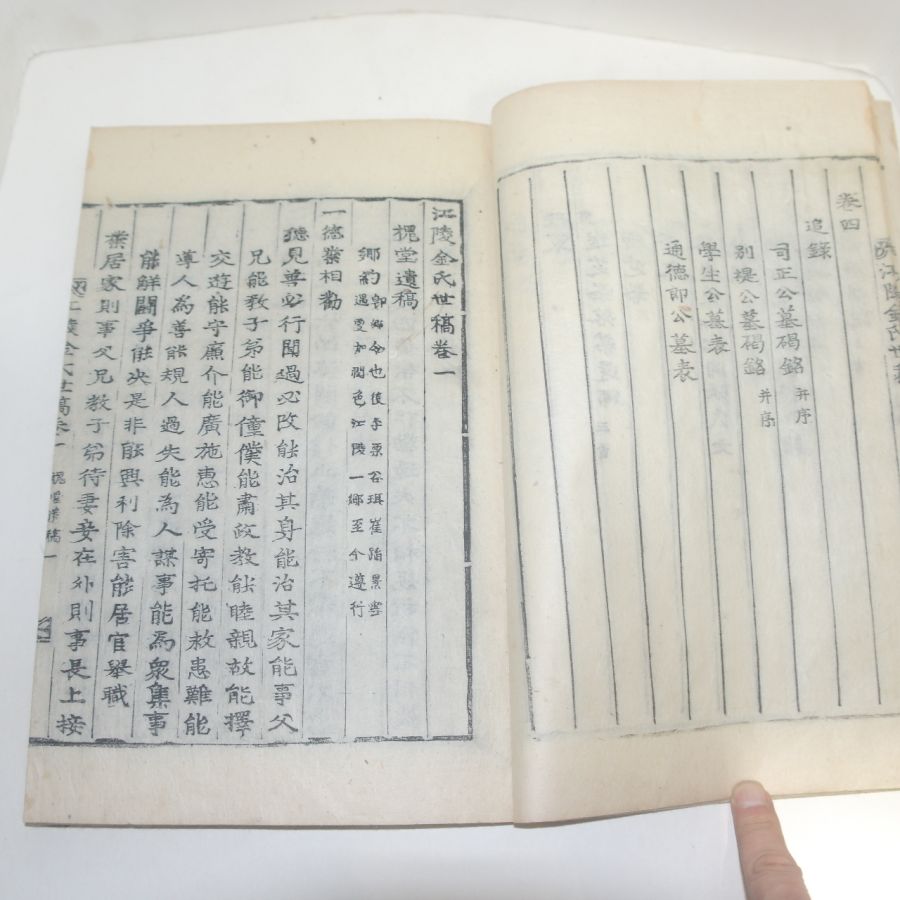 江陵金氏世
卷四
追錄
司正公墓碣銘 并序
別提公墓碣銘 并序
學生公墓表
通德郎公墓表
江陵金氏世稿卷一
槐堂遺稿
鄉約 令也後李栗谷珥崔 景
更加潤色江陵一鄉至今遵行
一德業相勸
見善必行聞過必改能治其身能治其家能事父
兄能教子弟能御僮僕能肅政教能睦親故能擇
交遊能守廉介能廣施惠能受寄托能救患難能
導人為善能規人過失能為人謀事能為衆集事
能解鬪爭能决是非能興利除害能居官舉職
業居家則事父兄教子弟待妻妾在外則事長上接
江陵金氏世稿卷一 槐堂遺稿 一